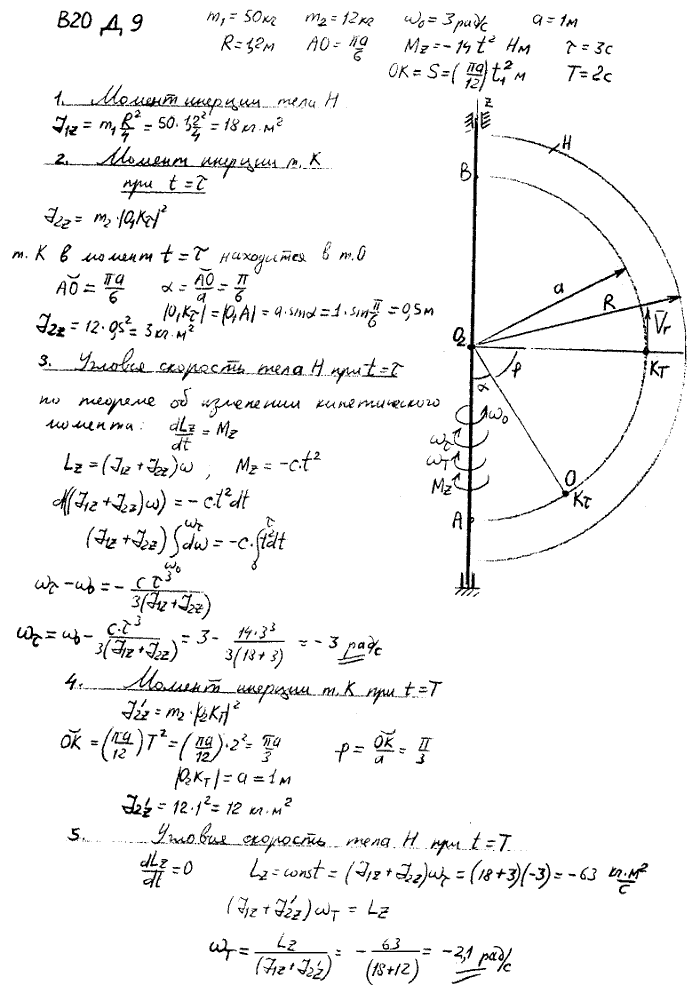 В20 Д 9
m₁ = 50кг m₂ = 12кг ω₀ = 3 рад/с a = 1м
R = 1,2м AO = πa/6 Mz = -14t² Нм τ = 3с
OK = S = (πa/12)t₁² м T = 2с
1. Момент инерции тела Н
J₁z = m₁R²/4 = 50·1,2²/4 = 18 кг·м²
2. Момент инерции т. К
при t = τ
J₂z = m₂·|O₁Kτ|²
т. К в момент t = τ находится в т. О
A͝O = πa/6 α = A͝O/a = π/6
|O₁Kτ| = |O₁A| = a·sinα = 1·sin π/6 = 0,5м
J₂z = 12·0,5² = 3 кг·м²
3. Угловая скорость тела Н при t = τ
по теореме об изменении кинетического
момента: dLz/dt = Mz
Lz = (J₁z + J₂z)ω ; Mz = -c·t²
d((J₁z + J₂z)ω) = -c·t²dt
(J₁z + J₂z) ∫ω₀^ωτ dω = -c·∫₀^τ t²dt
ωτ - ω₀ = - c·τ³/3(J₁z + J₂z)
ωτ = ω₀ - c·τ³/3(J₁z + J₂z) = 3 - 14·3³/3(18+3) = -3 рад/с
4. Момент инерции т. К при t = T
J₂z' = m₂·|O₂K_T|²
O͝K = (πa/12)T² = (πa/12)·2² = πa/3 β = O͝K/a = π/3
|O₂K_T| = a = 1м
J₂z' = 12·1² = 12 кг·м²
5. Угловая скорость тела Н при t = T
dLz/dt = 0 Lz = const = (J₁z + J₂z)ωτ = (18+3)(-3) = -63 кг·м²/с
(J₁z + J₂z')ω_T = Lz
ω_T = Lz/(J₁z + J₂z') = - 63/(18+12) = -2,1 рад/с
z
H
B
a
R
V̄r
O₂
K_T
β
α
ω₀
ωτ
ω_T
Mz
O
Kτ
A